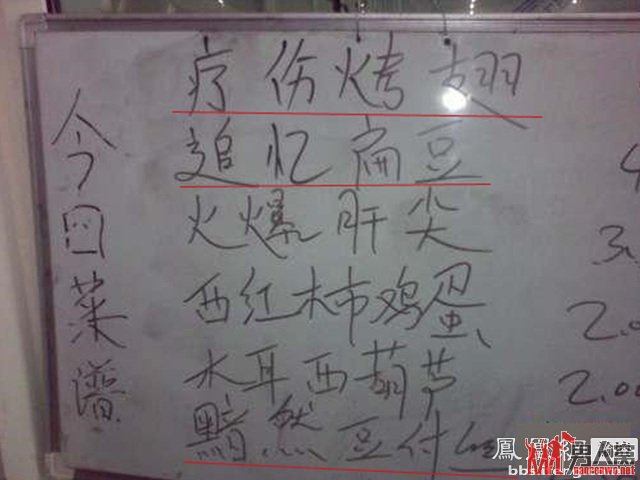 今日菜谱
疗伤烤翅
追忆扁豆 4
火爆肝尖 3.
西红柿鸡蛋 2.0
木耳西葫芦 2.00
黯然豆付
鳳凰網 論壇
男人窝
nanrenwo.net